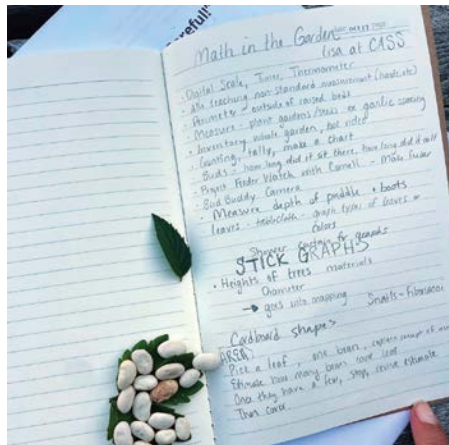 careful!"
Math in the Garden
Lisa at CASS
• Digital Scale, Timer, Thermometer
• Also teaching non-standard measurement (hands, etc)
• Perimeter - outside of raised beds
• Measure - plant gardens/ ex garlic spacing
• Inventory whole garden, bot video
• Counting, tally, make a chart
• Birds - how long did it sit there, how long did it call
• Project Feeder Watch with Cornell - Make feeder
• Bird Buddy Camera
• Measure depth of puddle + boots
leaves - tablecloth - graph types of leaves or
colors
Shower curtain for graphs
STICK GRAPHS
• Heights of trees materials
Diameter
→ goes into mapping Snails - Fibonacci
Cardboard shapes
AREA
Pick a leaf, one bean, explain concept of area
Estimate how many beans cover leaf
Once they have a few, stop, revise estimate
Then cover